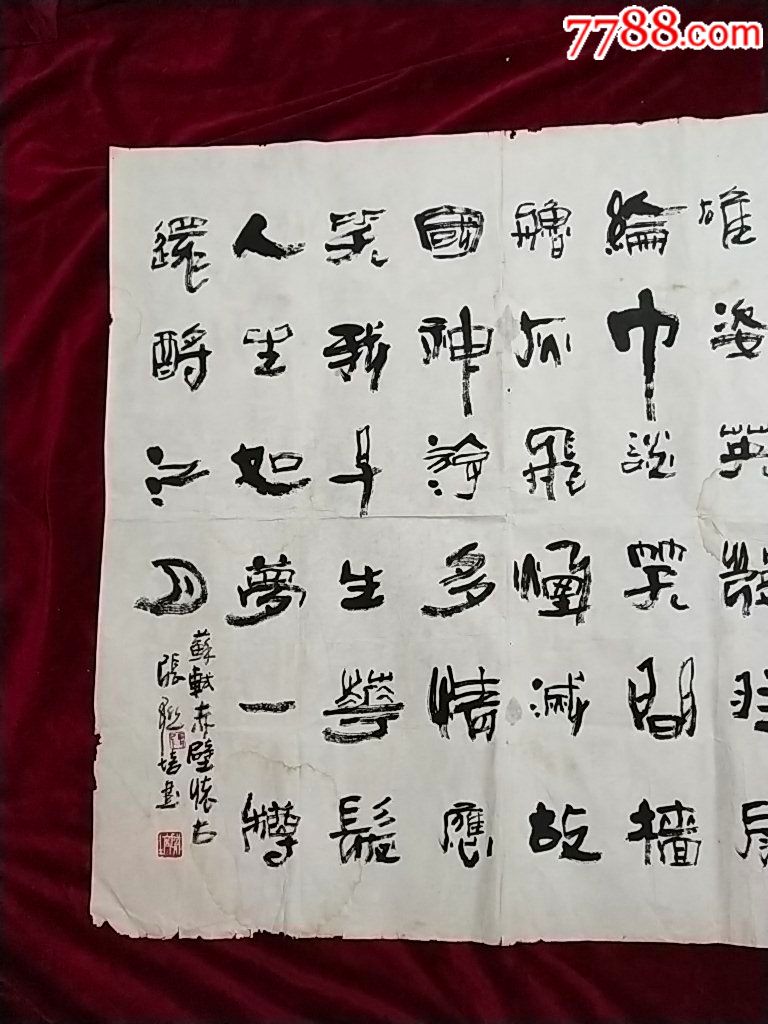 7788.com
雄姿英發羽扇
綸巾談笑間檣
艣灰飛煙滅故
國神游多情應
笑我早生華髮
人生如夢一樽
還酹江月
蘇軾赤壁懷古
張培書